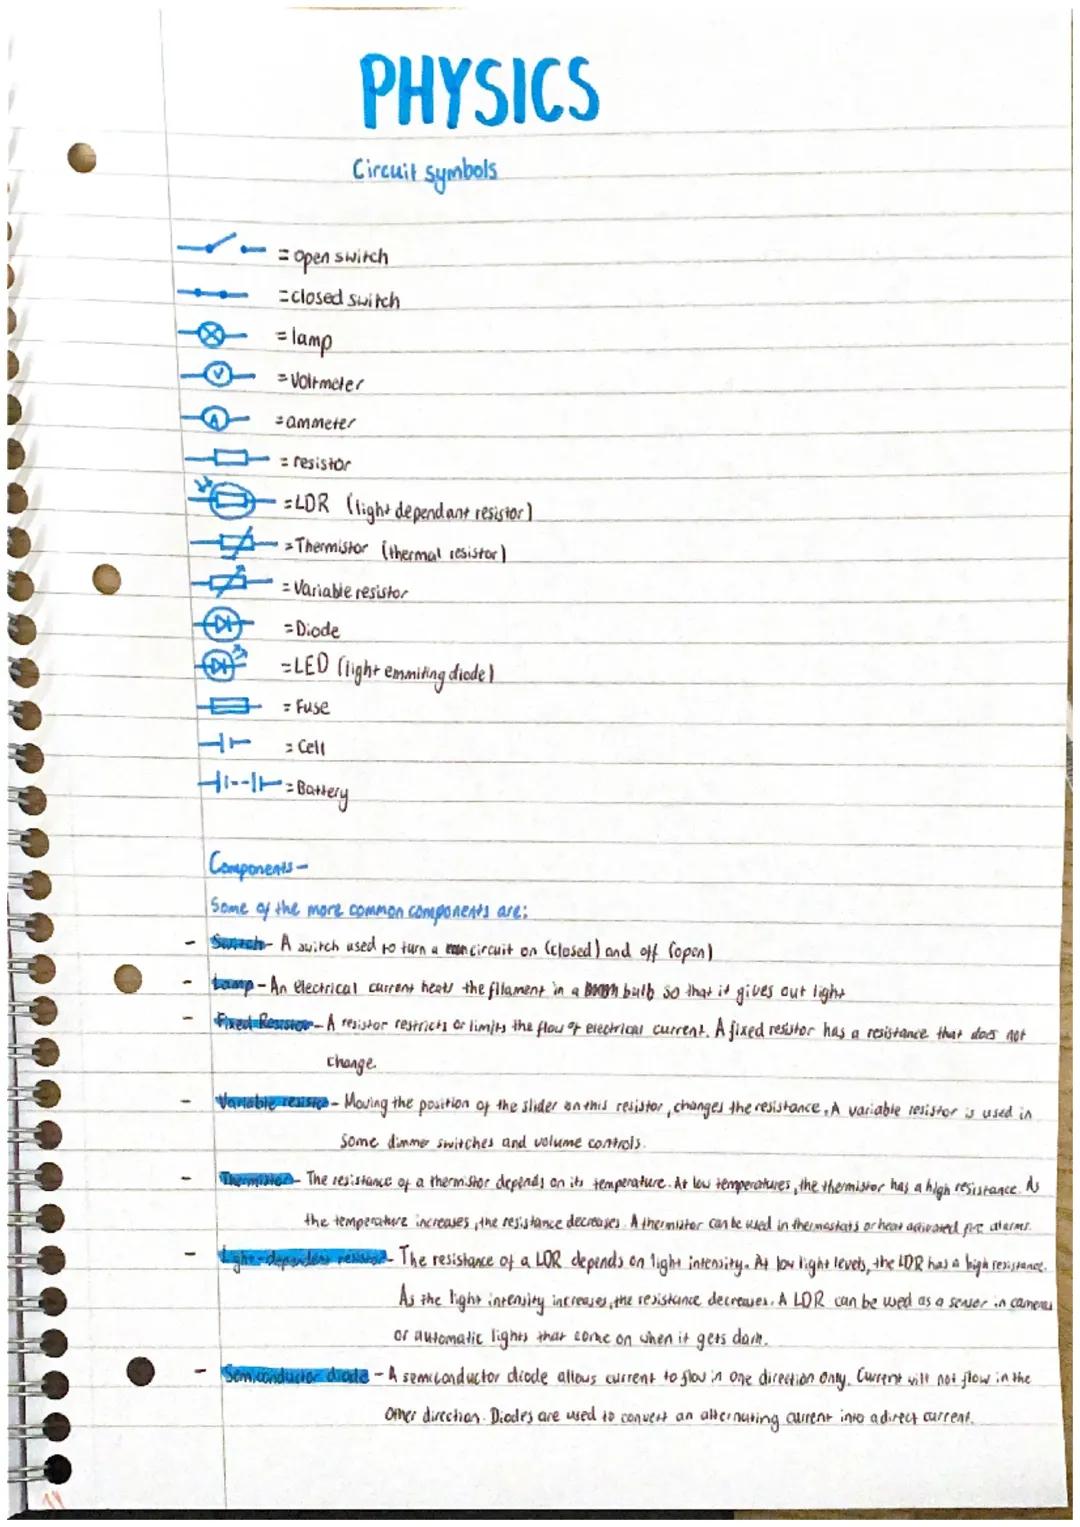 PHYSICS
Circuit symbols
= open switch
= closed switch
= lamp
V = Voltmeter
A = ammeter
= resistor
= LDR (light dependant resistor)
= Thermistor (thermal resistor)
= Variable resistor
= Diode
= LED (light emmiting diode)
= Fuse
= Cell
= Battery
Components -
Some of the more common components are:
- Switch - A switch used to turn a circuit on (closed) and off (open)
- Lamp - An electrical current heats the filament in a bulb so that it gives out light
- Fixed Resistor - A resistor restricts or limits the flow of electrical current. A fixed resistor has a resistance that does not
change.
- Variable resistor - Moving the position of the slider on this resistor, changes the resistance. A variable resistor is used in
some dimmer switches and volume controls.
- Thermistor - The resistance of a thermistor depends on its temperature. At low temperatures, the thermistor has a high resistance. As
the temperature increases, the resistance decreases. A thermistor can be used in thermostats or heat activated fire alarms.
- Light-dependent resistor - The resistance of a LDR depends on light intensity. At low light levels, the LDR has a high resistance.
As the light intensity increases, the resistance decreases. A LDR can be used as a sensor in cameras
or automatic lights that come on when it gets dark.
- Semiconductor diode - A semiconductor diode allows current to flow in one direction only. Current will not flow in the
other direction. Diodes are used to convert an alternating current into a direct current.